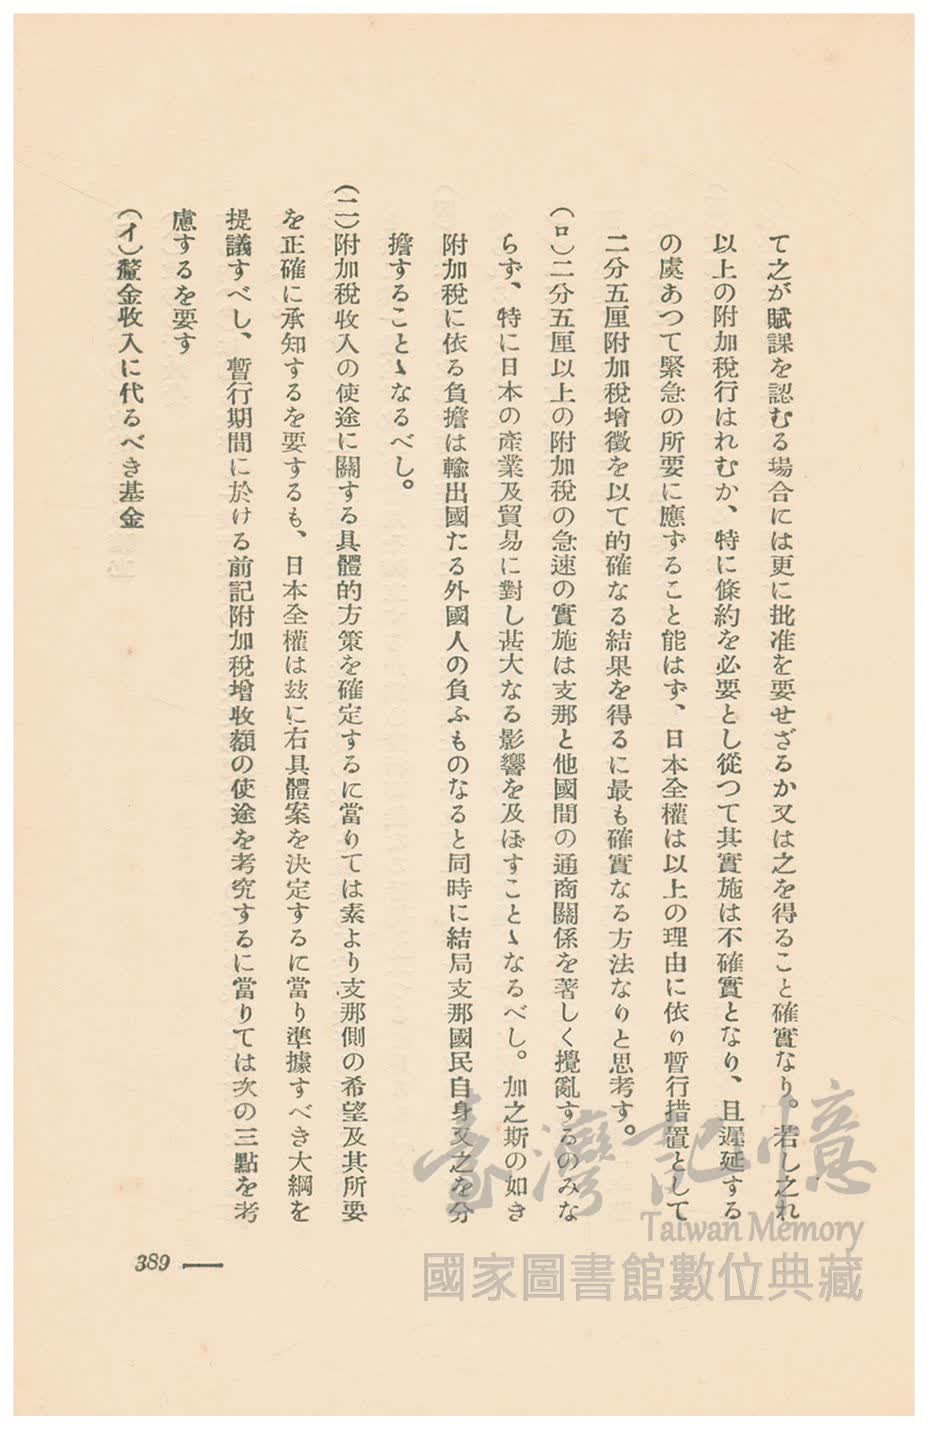 て之が賦課を認むる場合には更に批准を要せざるか又は之を得ること確實なり。若し之れ
以上の附加稅行はれむか、特に條約を必要とし從つて其實施は不確實となり、且遲延する
の虞あつて緊急の所要に應ずること能はず、日本全權は以上の理由に依り暫行措置として
二分五厘附加稅增徵を以て的確なる結果を得るに最も確實なる方法なりと思考す。
(ロ)二分五厘以上の附加稅の急速の實施は支那と他國間の通商關係を著しく攪亂するのみな
らず、特に日本の產業及貿易に對し甚大なる影響を及ぼすことゝなるべし。加之斯の如き
附加稅に依る負擔は輸出國たる外國人の負ふものなると同時に結局支那國民自身又之を分
擔することゝなるべし。
(二)附加稅收入の使途に關する具體的方策を確定するに當りては素より支那側の希望及其所要
を正確に承知するを要するも、日本全權は玆に右具體案を決定するに當り準據すべき大綱を
提議すべし、暫行期間に於ける前記附加稅增收額の使途を考究するに當りては次の三點を考
慮するを要す
(イ)釐金收入に代るべき基金
389
臺灣記憶
Taiwan Memory
國家圖書館數位典藏